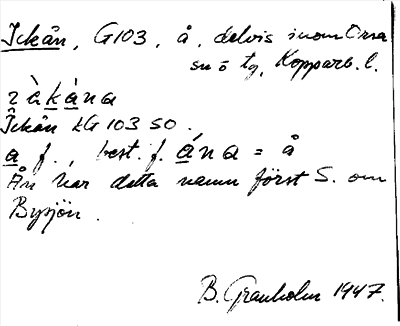 Ickån, G103, å, delvis inom Orsa
sn o tg, Kopparb. l.
ɩ̀kåna
Ickån kG 103 SO.
a f., best. f. ána = å
Ån har detta namn först S. om
Bysjön.
B. Granholm 1947.